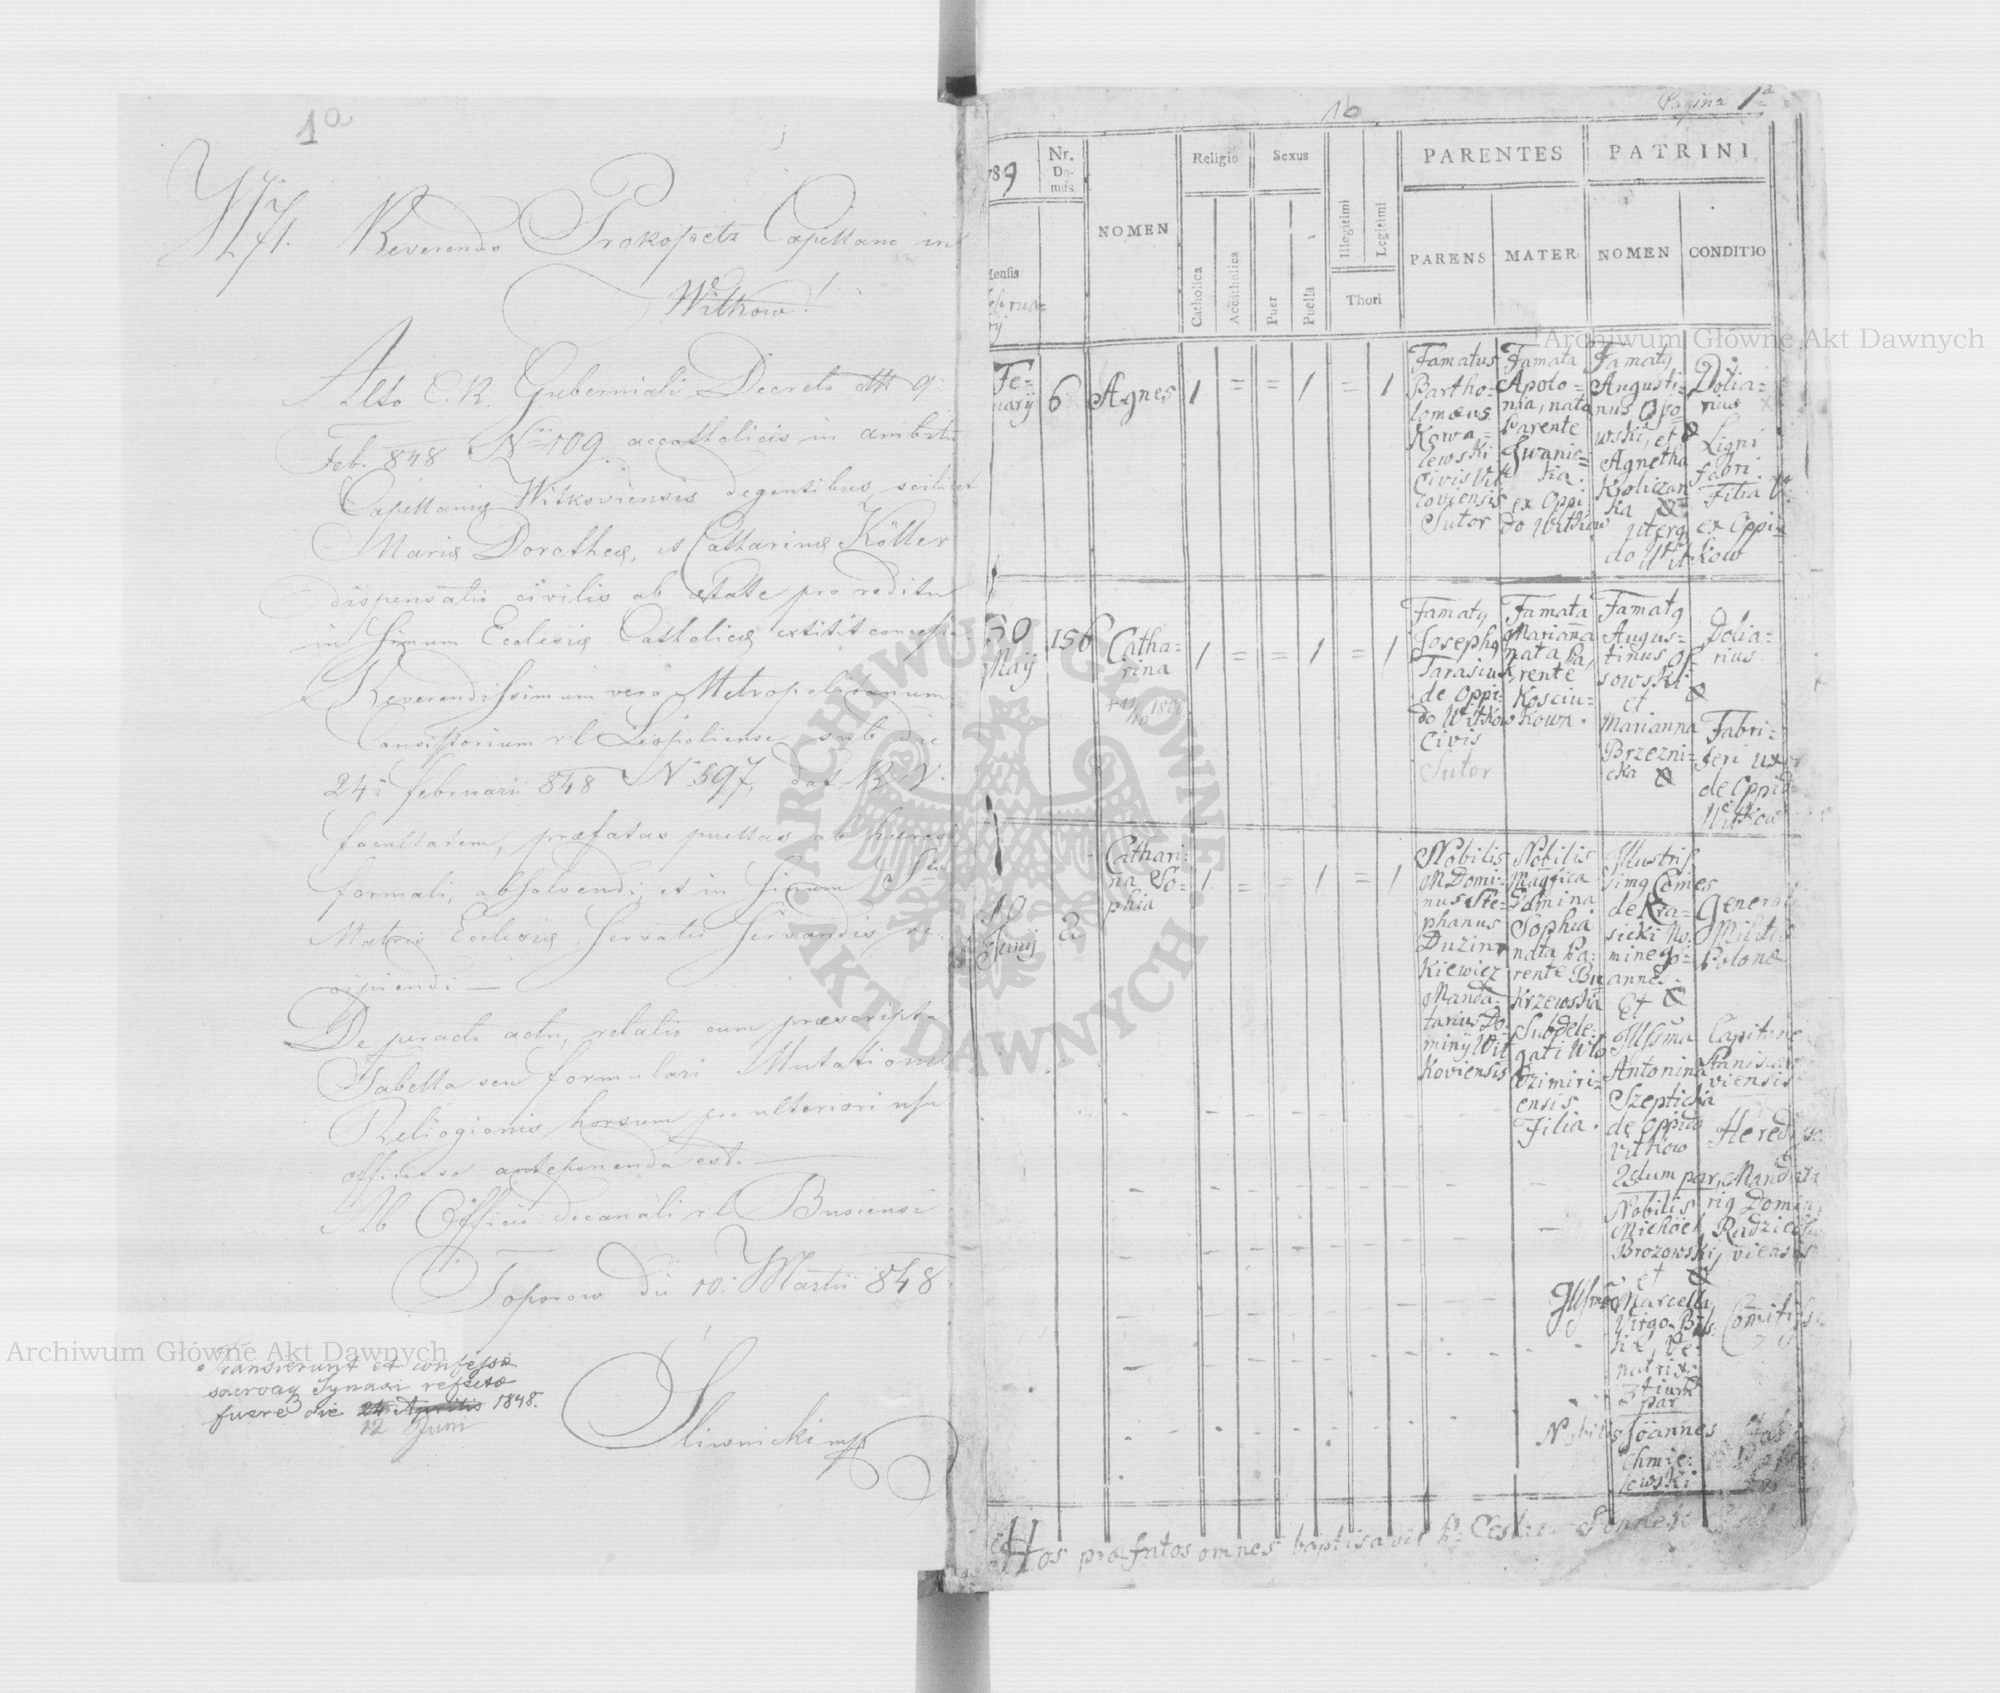 1a
N 71. Reverendo Prokopetz Capellano in
Witkow!
Alto C. R. Guberniali Decreto ddt 9.
Feb. 848 Nro 109. accatholicis in ambitu
Capellaniæ Witkoviensis degentibus, scilicet
Mariæ Dorotheæ, et Catharinæ Köller
dispensatio civilis ab ætate pro reditu
in sinum Ecclesiæ Catholicæ extitit concessa.
Reverendissimum vero Metropolitanum
Consistorium r. l. Leopoliense sub die
24a februarii 848 N 597, dat R. V.
facultatem, præfatas puellas ab hæresi
formali, absolvendi; et in sinum
Matris Ecclesiæ servatis servandis re-
cipiendi —
De peracto actu, relatio cum præscripta
Tabella seu formulari Mutationis
Religionis horsum pro ulteriori usu
officioso anteponenda est. —
Ab Officio decanali r. l. Buscensi
Toporow die 10. Martii 848
Sliwnicki mp
Transierunt et confessæ
sacraq Synaxi refectæ
fuere die 24 Aprilis 1848.
12 Juni
Archiwum Główne Akt Dawnych
10
Pagina 1a
789
Nr. Domus
NOMEN
Religio
Sexus
PARENTES
PATRINI
Catholica
Accatholica
Puer
Puella
Illegitimi
Legitimi
Thori
PARENS
MATER
NOMEN
CONDITIO
Mensis
Februa-
rij
6
Agnes
1 = = 1 = 1
Famatus
Bartho-
lomæus
Kowa-
lewski
Civis Vit-
coviensis
Sutor
Famata
Apolo-
nia, nata
Parente
Iwanic-
ka.
ex Oppi
do Witkow
Famatq
Augusti-
nus Oso
wski, et
Agnetha
Koliczan
ka
uterq ex Oppi-
do Witkow
Dolia-
rius
Ligni
fabri
Filia
30
Maij
156
Catha-
rina
1 = = 1 = 1
Famatq
Josephq
Tarasiuk,
de Oppi-
do Witkow
Civis
Sutor
Famata
Marianna
nata Pa-
rente
Kosciu-
Kowa.
Famatq
Augus-
tinus Os
sowski
et
Marianna
Brzezni-
cka
Dolia-
rius
Fabri-
feri uxor
de Oppid
Witkow
10
Junij
2
Cathari-
na So-
phia
1 = = 1 = 1
Nobilis
MDomi-
nus Ste-
phanus
Duzin
Kiewicz
Manda-
tarius Do-
minij Wit-
koviensis
Nobilis
Magfica
Domina
Sophia
nata Pa-
rente Bu
krzewska
Subdele-
gati Wlo
dzimiri-
ensis
Filia.
Illustris
simq Comes
de Kra-
sicki No-
mine
annes
et
Illsma
Antonina
Szepticka
de Oppido
Vitkow
2dum par,
Nobilis
Michael
Brozowski,
et
Illsma Marcella
Virgo Biels-
ka, Ve-
natrix
3tium
par
Nobilis Joannes
Chmie-
lewski
General
Militiæ
Polonæ
Capitane
Stanisla-
viensis
Hered
Mandata
riq Domini
Radziecho
viensis
Comitissa
Hos præfatos omnes baptisavit
Archiwum Główne Akt Dawnych
ARCHIWUM GŁÓWNE AKT DAWNYCH